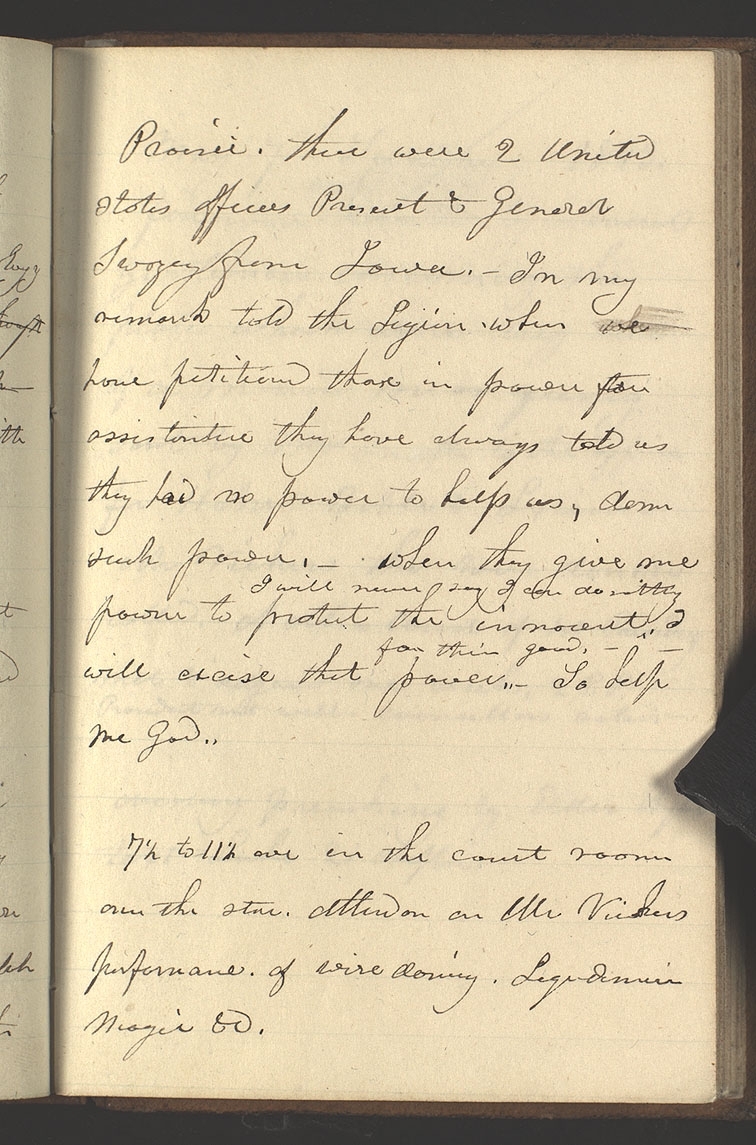 Prairie. there were 2 United
states officers Present & General
Swazey from Iowa. – In my
remarks told the Legion when we
have petitiond those in power for
assistantce they have always told us
they had no power to help us, damn
such power. – when they give me
I will never say I can do nothig
power to protect the innocent, I
for their good. –
will excise that power. – So help
me God..
7½ to 11½ eve in the court room
over the store. attendon on Mr Vickers
performance. of wire dancing. Legerdemain
Magic &c.